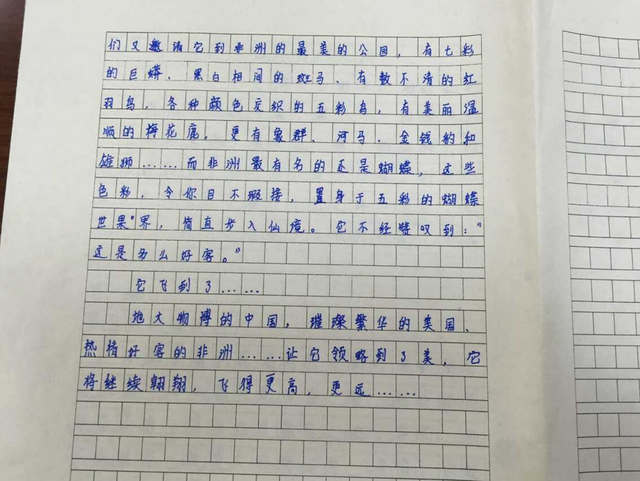 们又邀请它到非洲的最美的公园，有七彩
的巨蟒、黑白相间的斑马、有数不清的红
羽鸟，各种颜色交织的五彩鸟，有美丽温
顺的梅花鹿，更有象群、河马、金钱豹和
雄狮……而非洲最有名的还是蝴蝶，这些
色彩，令你目不暇接，置身于五彩的蝴蝶
世果"界，简直步入仙境。它不经赞叹到："
这是多么好客。"
它飞到了……
地大物博的中国，璀璨繁华的美国、
热情好客的非洲……让它领略到了美，它
将继续翱翔，飞得更高，更远……